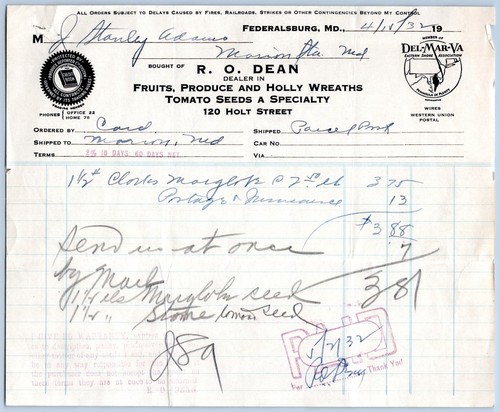 ALL ORDERS SUBJECT TO DELAYS CAUSED BY FIRES, RAILROADS, STRIKES OR OTHER CONTINGENCIES BEYOND MY CONTROL
FEDERALSBURG, MD., 4/18/32 19
M J Stanley Adams
Marion Sta Md
BOUGHT OF
R. O. DEAN
DEALER IN
FRUITS, PRODUCE AND HOLLY WREATHS
TOMATO SEEDS A SPECIALTY
120 HOLT STREET
PHONES OFFICE 22
HOME 72
MEMBER OF
DEL-MAR-VA
EASTERN SHORE ASSOCIATION
WIRES
WESTERN UNION
POSTAL
ORDERED BY Card
SHIPPED Parcel Post
SHIPPED TO Marion, Md
CAR NO
TERMS 2% 10 DAYS: 60 DAYS NET.
VIA
1 1/2 # Clarks Marglobe @ 2 50 lb 3 75
Postage & Insurance 13
$3 88
7
Send us at once
3 81
by Mail
1 1/2 lbs Marglobe seed
1 1/2 " Stone Tomato Seed
PAID
5/2/32
Per Thank You!